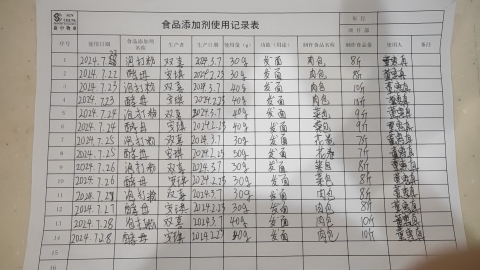 食品添加剂使用记录表
序号 使用日期 食品添加剂名称 生产者 生产日期 使用量(g) 功能(用途) 制作食品名称 制作食品量 使用人 备注
1 2024.7.22 泡打粉 双喜 2024.3.7 30g 发面 肉包 8斤
2 2024.7.22 酵母 安琪 2024.2.23 30g 发面 肉包 8斤
3 2024.7.23 泡打粉 双喜 2024.3.7 40g 发面 肉包 10斤
4 2024.7.23 酵母 安琪 2024.2.23 40g 发面 肉包 10斤
5 2024.7.24 泡打粉 双喜 2024.3.7 40g 发面 菜包 9斤
6 2024.7.24 酵母 安琪 2024.2.23 40g 发面 菜包 9斤
7 2024.7.25 泡打粉 双喜 2024.3.7 30g 发面 花卷 7斤
8 2024.7.25 酵母 安琪 2024.2.23 30g 发面 花卷 7斤
9 2024.7.26 泡打粉 双喜 2024.3.7 30g 发面 菜包 8斤
10 2024.7.26 酵母 安琪 2024.2.23 30g 发面 菜包 8斤
11 2024.7.27 泡打粉 双喜 2024.3.7 30g 发面 肉包 8斤
12 2024.7.27 酵母 安琪 2024.2.23 30g 发面 肉包 8斤
13 2024.7.28 泡打粉 双喜 2024.3.7 40g 发面 肉包 10斤
14 2024.7.28 酵母 安琪 2024.2.23 40g 发面 肉包 10斤
15
16